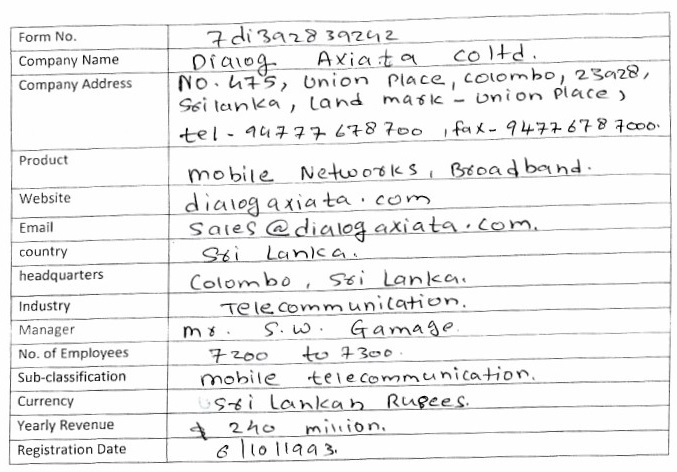 Form No. 7di392839242
Company Name Dialog Axiata co ltd.
Company Address No. 475, Union Place, Colombo, 23928,
Sri lanka, Land mark - Union Place,
tel - 94777 678 700, fax - 94776787000.
Product mobile Networks, Broadband.
Website dialogaxiata.com
Email Sales@dialogaxiata.com.
country Sri Lanka.
headquarters Colombo, Sri Lanka.
Industry Telecommunication.
Manager mr. S.w. Gamage.
No. of Employees 7200 to 7300.
Sub-classification mobile telecommunication.
Currency Sri Lankan Rupees.
Yearly Revenue $ 240 million.
Registration Date 6/10/1993.